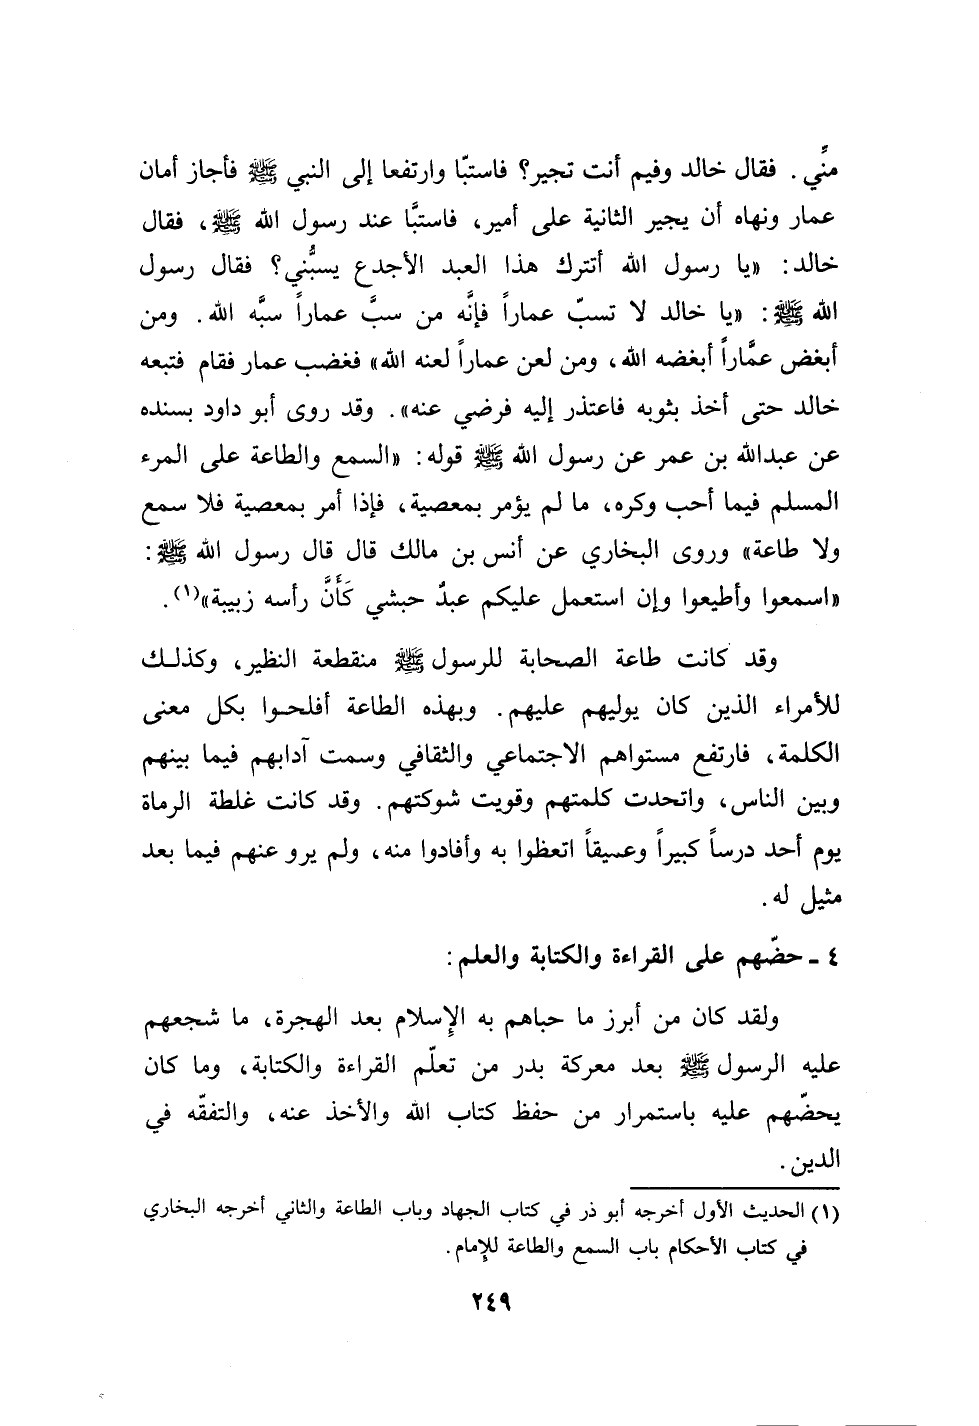 منِّي. فقال خالد وفيم أنت تجير؟ فاستبّا وارتفعا إلى النبي ﷺ فأجاز أمان
عمار ونهاه أن يجير الثانية على أمير، فاستبَّا عند رسول الله ﷺ، فقال
خالد: «يا رسول الله أتترك هذا العبد الأجدع يسبُّني؟ فقال رسول
الله ﷺ: «يا خالد لا تسبّ عماراً فإنَّه من سبَّ عماراً سبَّه الله. ومن
أبغض عمَّاراً أبغضه الله، ومن لعن عماراً لعنه الله» فغضب عمار فقام فتبعه
خالد حتى أخذ بثوبه فاعتذر إليه فرضي عنه». وقد روى أبو داود بسنده
عن عبدالله بن عمر عن رسول الله ﷺ قوله: «السمع والطاعة على المرء
المسلم فيما أحب وكره، ما لم يؤمر بمعصية، فإذا أمر بمعصية فلا سمع
ولا طاعة» وروى البخاري عن أنس بن مالك قال قال رسول الله ﷺ:
«اسمعوا وأطيعوا وإن استعمل عليكم عبدٌ حبشي كَأَنَّ رأسه زبيبة»(١).
وقد كانت طاعة الصحابة للرسول ﷺ منقطعة النظير، وكذلك
للأمراء الذين كان يوليهم عليهم. وبهذه الطاعة أفلحوا بكل معنى
الكلمة، فارتفع مستواهم الاجتماعي والثقافي وسمت آدابهم فيما بينهم
وبين الناس، واتحدت كلمتهم وقويت شوكتهم. وقد كانت غلطة الرماة
يوم أحد درساً كبيراً وعميقاً اتعظوا به وأفادوا منه، ولم يرو عنهم فيما بعد
مثيل له.
٤ - حضّهم على القراءة والكتابة والعلم:
ولقد كان من أبرز ما حباهم به الإسلام بعد الهجرة، ما شجعهم
عليه الرسول ﷺ بعد معركة بدر من تعلّم القراءة والكتابة، وما كان
يحضّهم عليه باستمرار من حفظ كتاب الله والأخذ عنه، والتفقّه في
الدين.
(١) الحديث الأول أخرجه أبو ذر في كتاب الجهاد وباب الطاعة والثاني أخرجه البخاري
في كتاب الأحكام باب السمع والطاعة للإمام.
٢٤٩